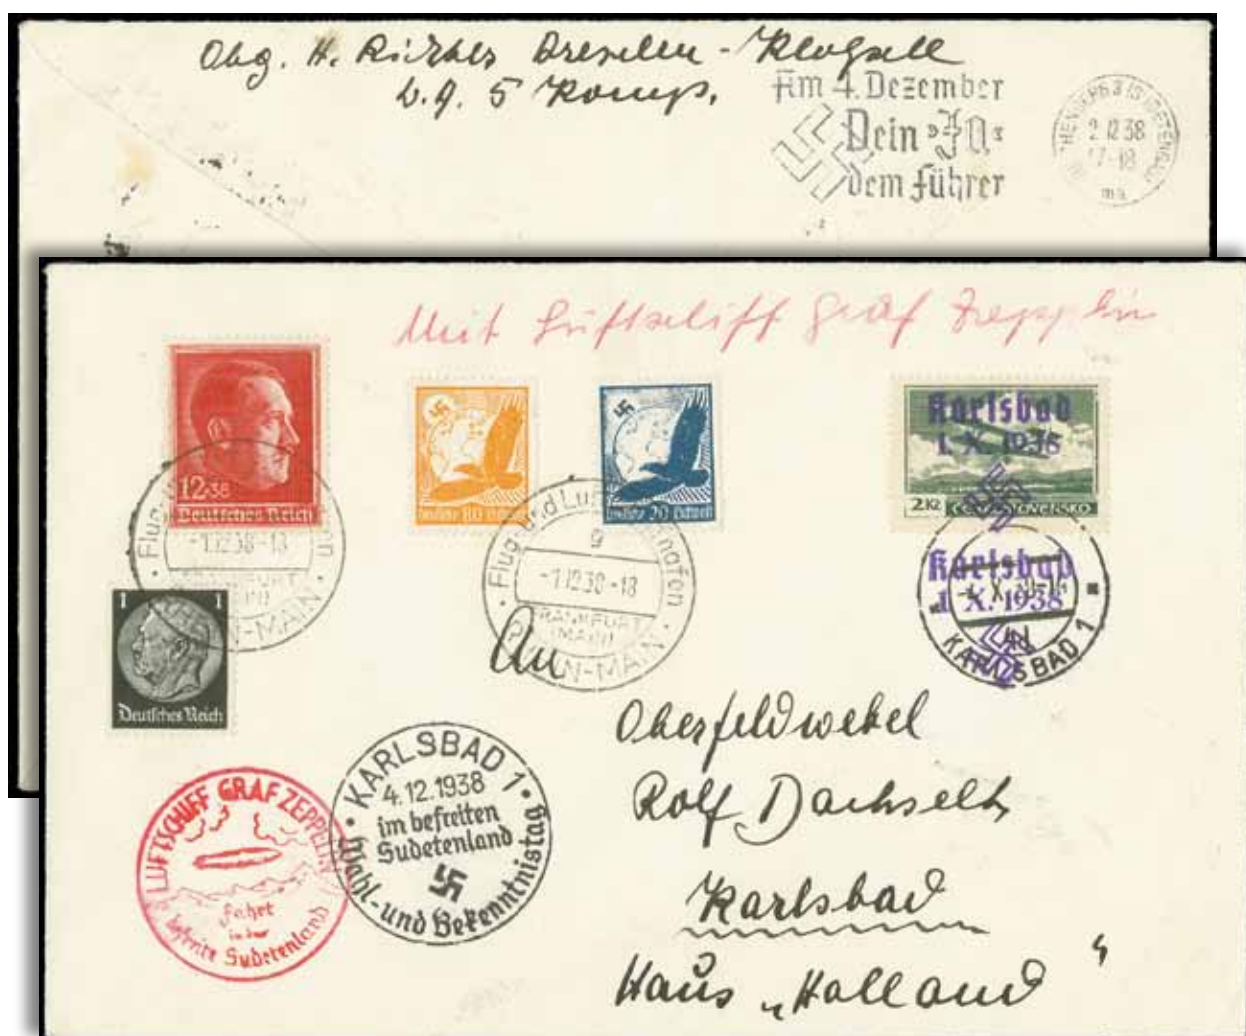 Obg. H. Richter Dresden - Klotzsche
L.A. 5 Komp.
Am 4. Dezember
Dein »Ja«
dem Führer
2.12.38
17-18
ma
Mit Luftschiff Graf Zeppelin
12+38
Deutsches Reich
Flug- und Luft
-1.12.38-18
FRANKFURT
(MAIN)
RHEIN-MAIN
Deutsche 80 Luftpost
Deutsche 20 Luftpost
Flug- und Luft hafen
g
-1.12.38-18
FRANKFURT
(MAIN)
N-MAIN
Karlsbad
1. X. 1938
2 Kč ČESKOSLOVENSKO
Karlsbad
1. X. 1938
KARLSBAD 1
1 1
Deutsches Reich
An
Oberfeldwebel
Rolf Dachselt
Karlsbad
Haus „Holland“
LUFTSCHIFF GRAF ZEPPELIN
Fahrt
in das
befreite Sudetenland
KARLSBAD 1
4.12.1938
im befreiten
Sudetenland
Wahl- und Bekenntnistag